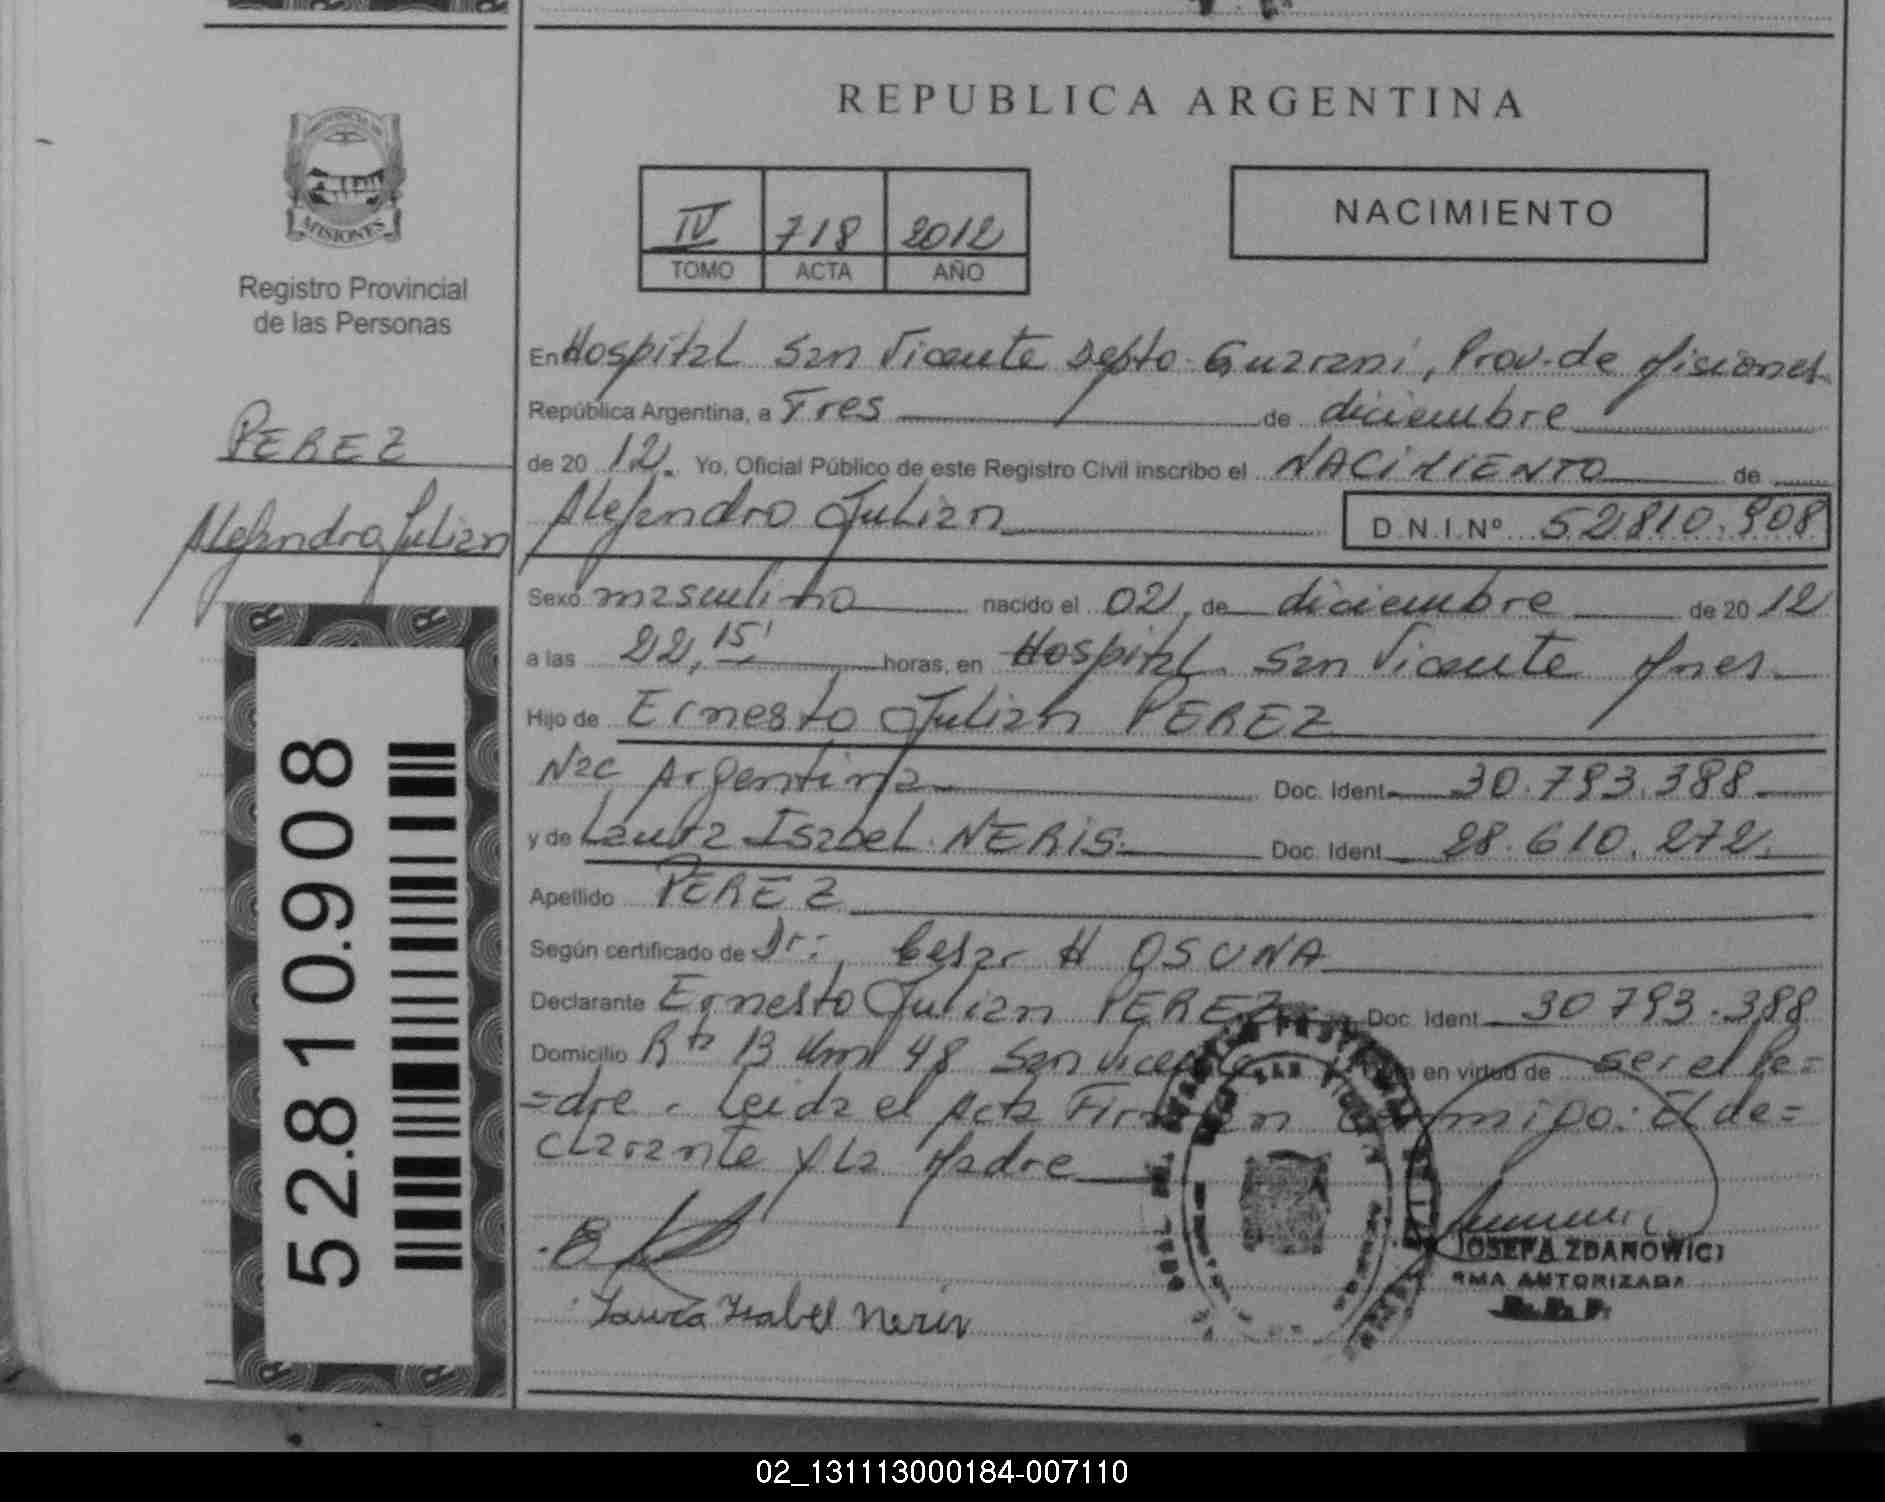 REPUBLICA ARGENTINA
PROVINCIA DE
MISIONES
Registro Provincial
de las Personas
IV 718 2012
TOMO ACTA AÑO
NACIMIENTO
PEREZ
Alejandro Julian
52.810.908
En Hospital San Vicente Depto. Guarani, Prov. de Misiones
República Argentina, a Tres de diciembre
de 20 12. Yo, Oficial Público de este Registro Civil inscribo el NACIMIENTO de
Alejandro Julian D.N.I.Nº 52.810.908
Sexo masculino nacido el 02, de diciembre de 20 12
a las 22,15' horas, en Hospital San Vicente Mnes.
Hijo de Ernesto Julian PEREZ
Nac Argentina Doc. Ident. 30.793.388
y de Laura Isabel NERIS. Doc. Ident. 28.610.272.
Apellido PEREZ
Según certificado de Dr: Cesar H OSUNA
Declarante Ernesto Julian PEREZ Doc. Ident. 30 793.388
Domicilio Rta 13 Km 48 San Vicente en virtud de ser el Pa=
=dre. Leida el Acta Firman Conmigo: El de=
clarante y la Madre
Laura Isabel Neris
JOSEFA ZDANOWICZ
FIRMA AUTORIZADA
02_131113000184-007110